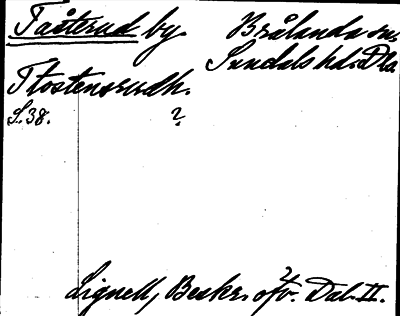 Tåsterud by Brålanda sn.
Sundals hd. Dla.
Tostensrudh.
S. 38. ?
Lignell, Beskr. öfv. Dal. II.